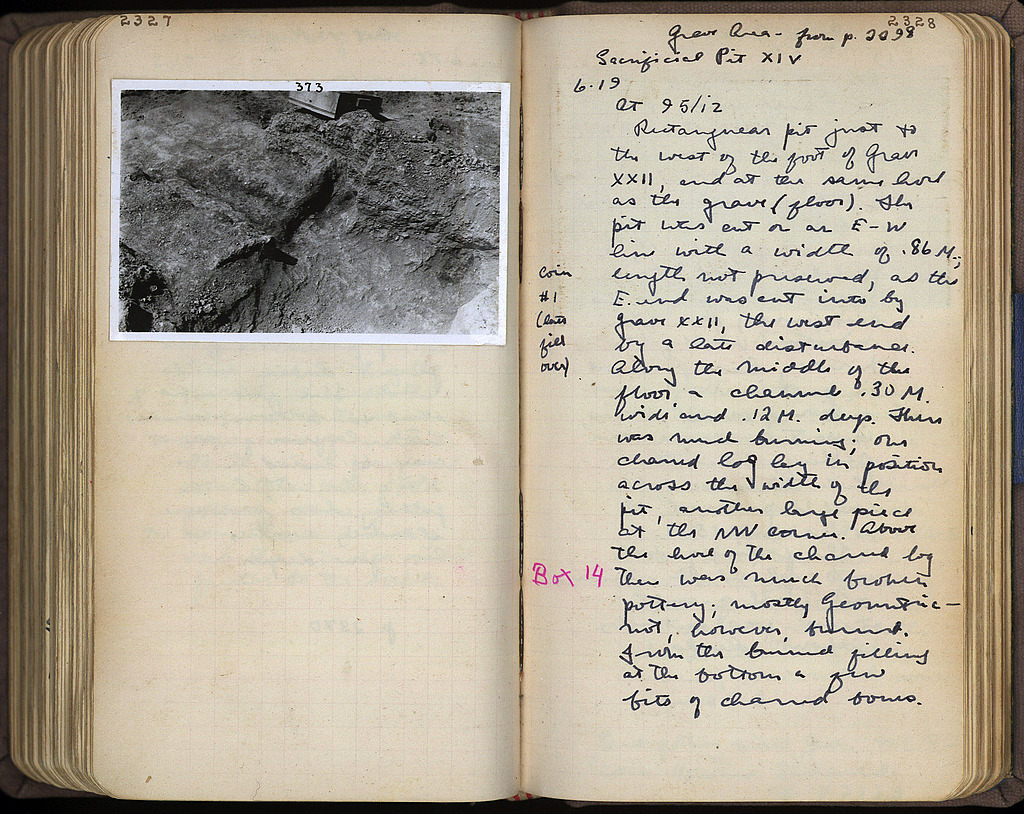 2327
373
2328
Grave Area - from p. 2298
Sacrificial Pit XIV
6.19
At 95/12
Rectangular pit just to
the west of the foot of Grave
XXII, and at the same level
as the grave (floor). The
pit was cut on an E-W
line with a width of .86 M.;
length not preserved, as the
E. end was cut into by
grave XXII, the west end
by a late disturbance.
Along the middle of the
floor a channel .30 M.
wide and .12 M. deep. There
was much burning; one
charred log lay in position
across the width of the
pit, another large piece
at the NW corner. Above
the level of the charred log
there was much broken
pottery; mostly Geometric—
not, however, burned.
From the burned filling
at the bottom a few
bits of charred bones.
coin
#1
(late
fill
over)
Box 14